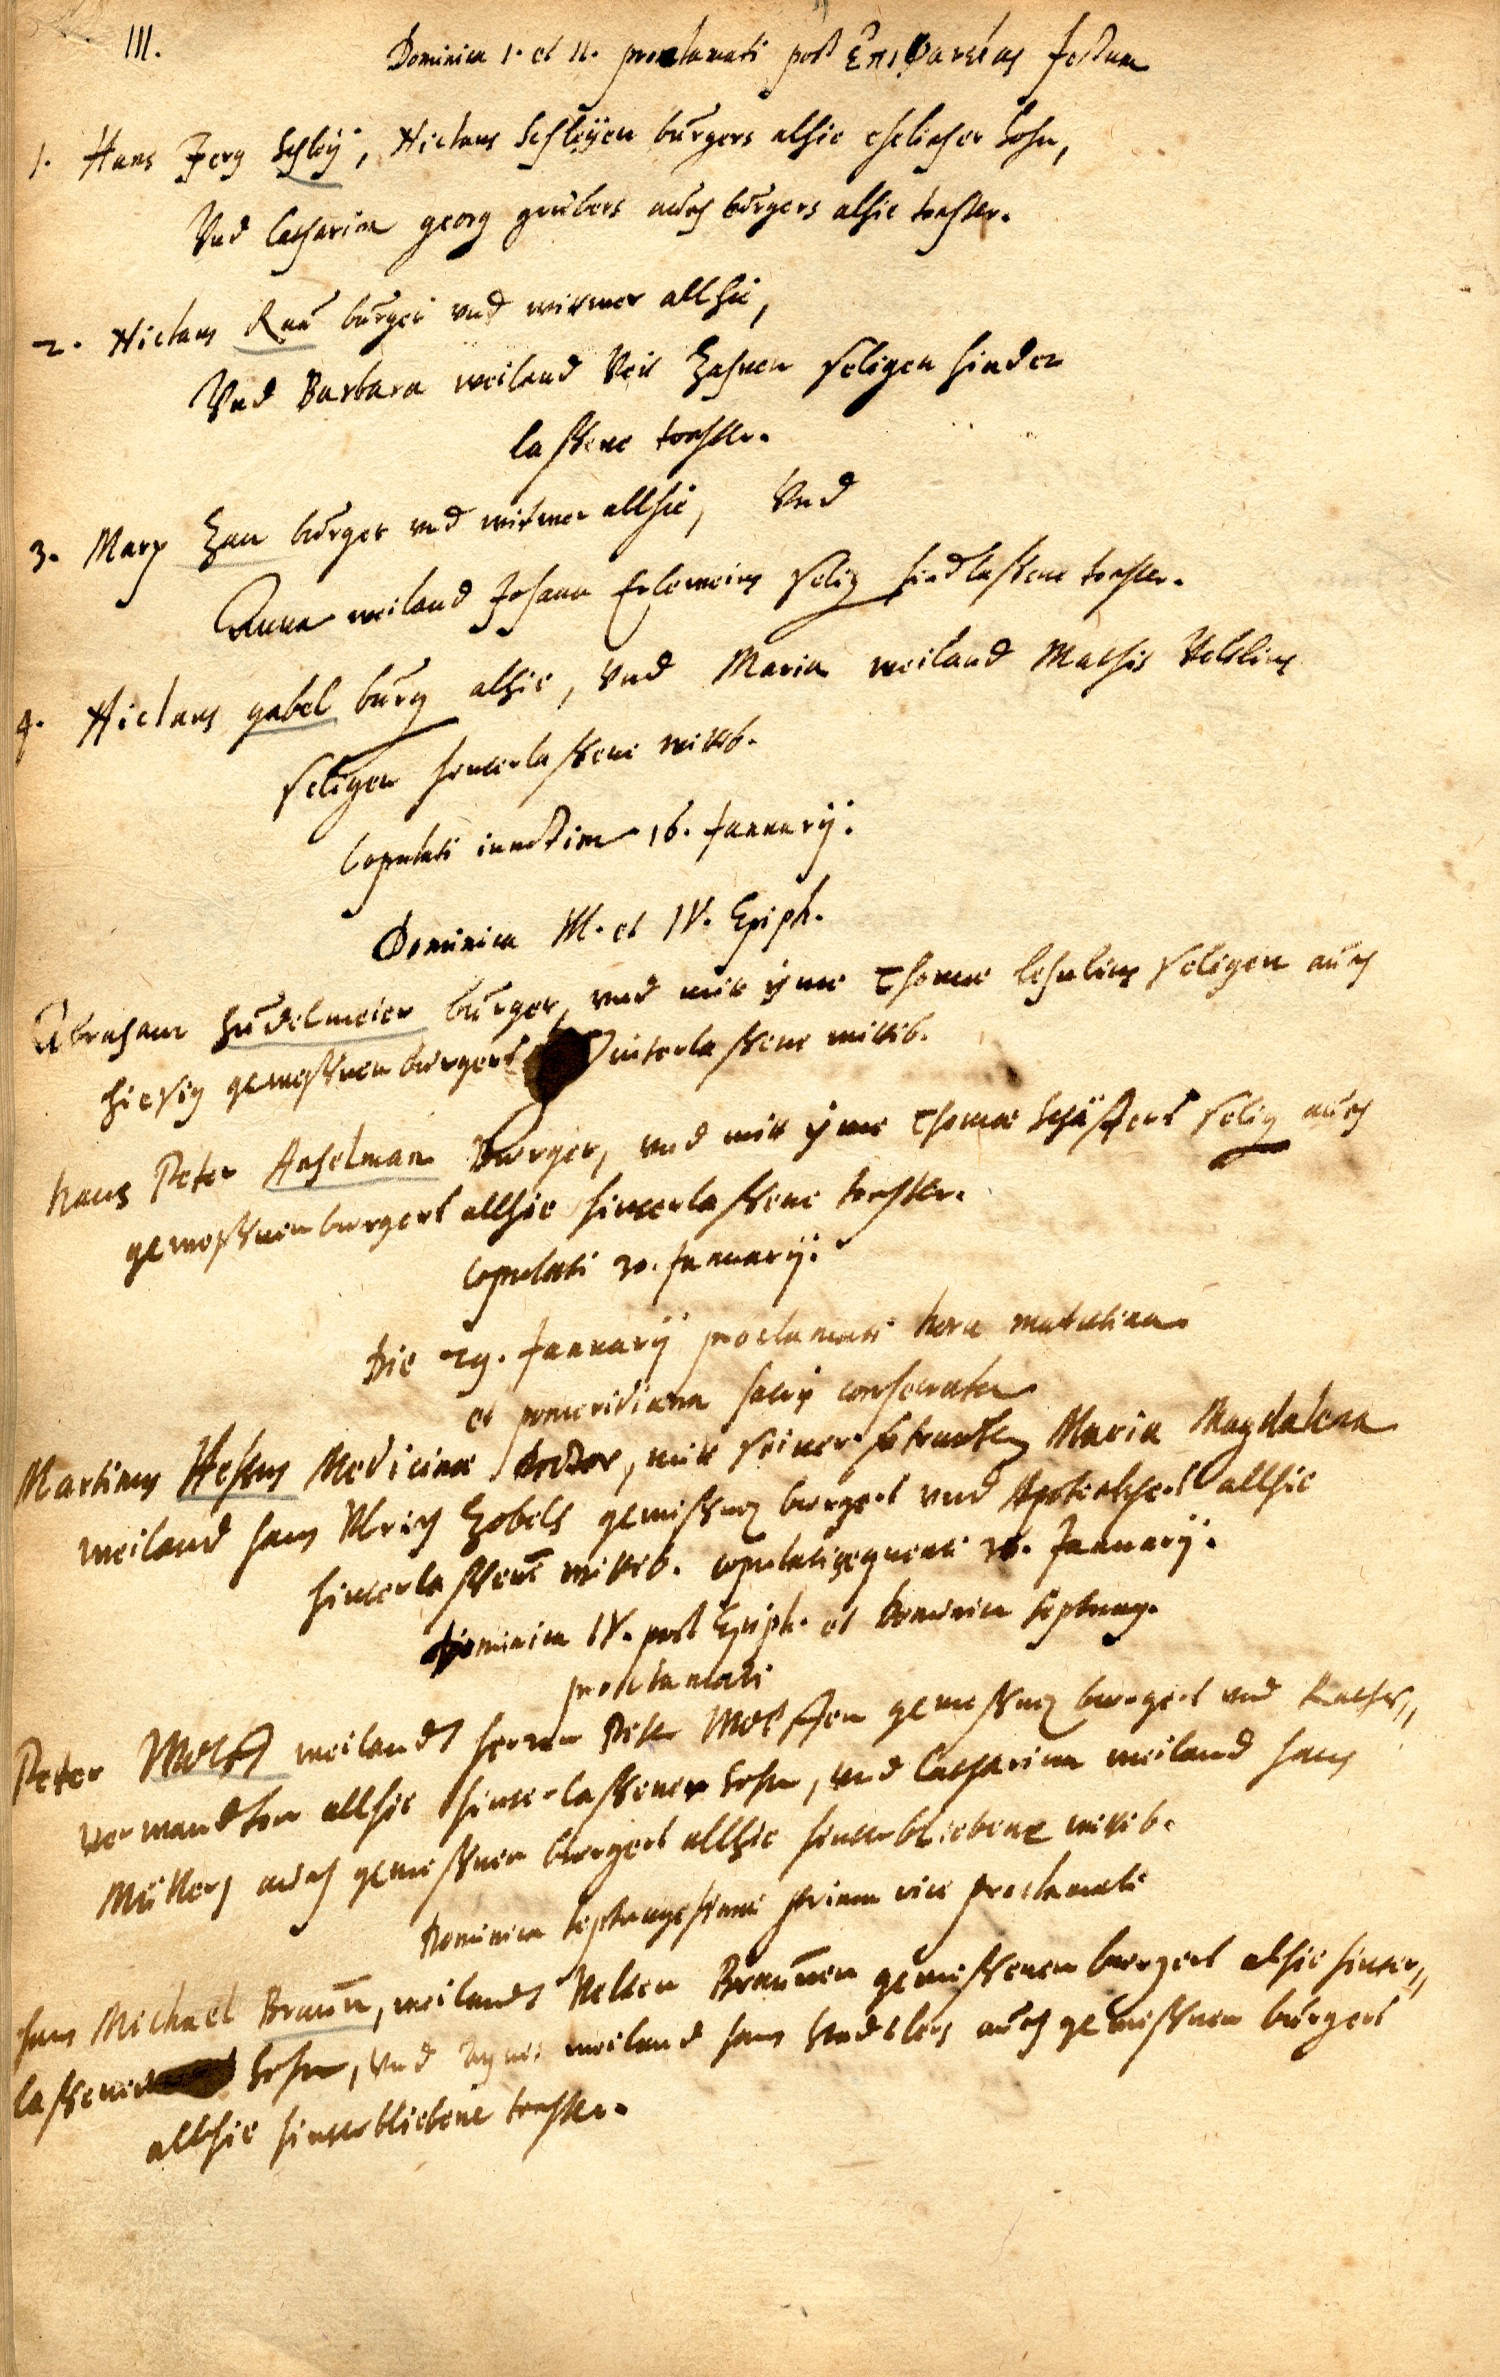 III.
Dominica I. et II. proclamati post Ἐπιφανείας festum
1. Hans Jerg Schleÿ, Niclaus Schleÿen burgers alhie ehelicher Sohn,
Vnd Catharina georg grubers auch burgers alhie tochter.
2. Niclaus Rau burger vnd wittwer allhie,
Vnd Barbara weiland Veit Hahnen seligen hinder
lassene tochter.
3. Marx Han burger vnd witwer allhie, Vnd
Anna weiland Johann Erleweins selig hindlassene tochter.
4. Niclaus gabel burg alhie, Vnd Maria weiland Mathis
seligen hinterlassene wittb.
Copulati 16. Januarÿ.
Dominica III. et IV. Epiph.
Abraham Hudelmeier burger, vnd mit ihme Thomae seligen auch
hiesig gewessnen burgers hinterlassene wittib.
hans Peter Anselman Burger, vnd mit ihme Thomae Schäffers selig auch
gewessnen burgers allhie hinterlassene tochter.
Copulati 30. Januarÿ.
Die 29. Januarÿ proclamati hora matutina
et pomeridiana sacris consecrata
Martinus Medicinae doctor, mit seiner Maria Magdalena
weiland hans Ulrich Zobels gewessnen burgers vnd Apoteckers allhie
hinterlassene wittib. copulati sequenti 30. Januarÿ.
Dominica IV. post Epiph. et Dominica Septuag.
proclamati
Peter Wolff weilandt herrn Peter Wolffen gewessnen burgers vnd Raths„
verwandten allhie hinterlassener Sohn, vnd Catharina weiland hans
Müllers auch gewessnen burgers allhie hinterbliebene wittib.
Dominica Septuagesimae prima vice proclamati
hans Michael Braun, weilandt Velten Braunen gewessenen burgers alhie hinter„
lassener Sohn, vnd Agnes weiland hans auch gewessnen burgers
allhie hinterbliebene tochter.